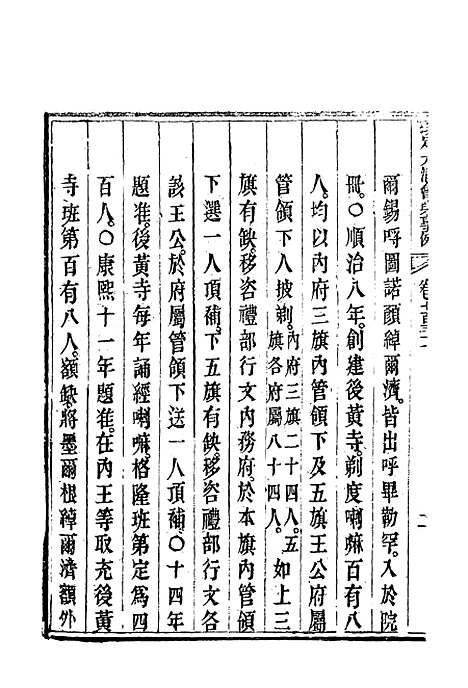 欽定大清會典事例 卷七百三十七
爾錫呼圖諾顏綽爾濟。皆出呼畢勒罕。入於院
冊。〇順治八年。創建後黃寺。剃度喇嘛百有八
人。均以內府三旗內管領下及五旗王公府屬
管領下人披剃。內府三旗二十四人。五旗各府屬八十四人。如上三
旗有缺。移咨禮部行文內務府。於本旗內管領
下選一人頂補。下五旗有缺。移咨禮部行文各
該王公。於府屬管領下送一人頂補。〇十四年
題准。後黃寺每年誦經喇嘛格隆班第定爲四
百人。〇康熙十一年題准。在內王等取充後黃
寺班第百有八人。額缺。將墨爾根綽爾濟額外